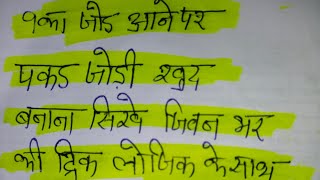 १का जोड आने पर
पकड जोडी खुद
बनाना सिखे जिवन भर
की ट्रिक लोजिक के साथ